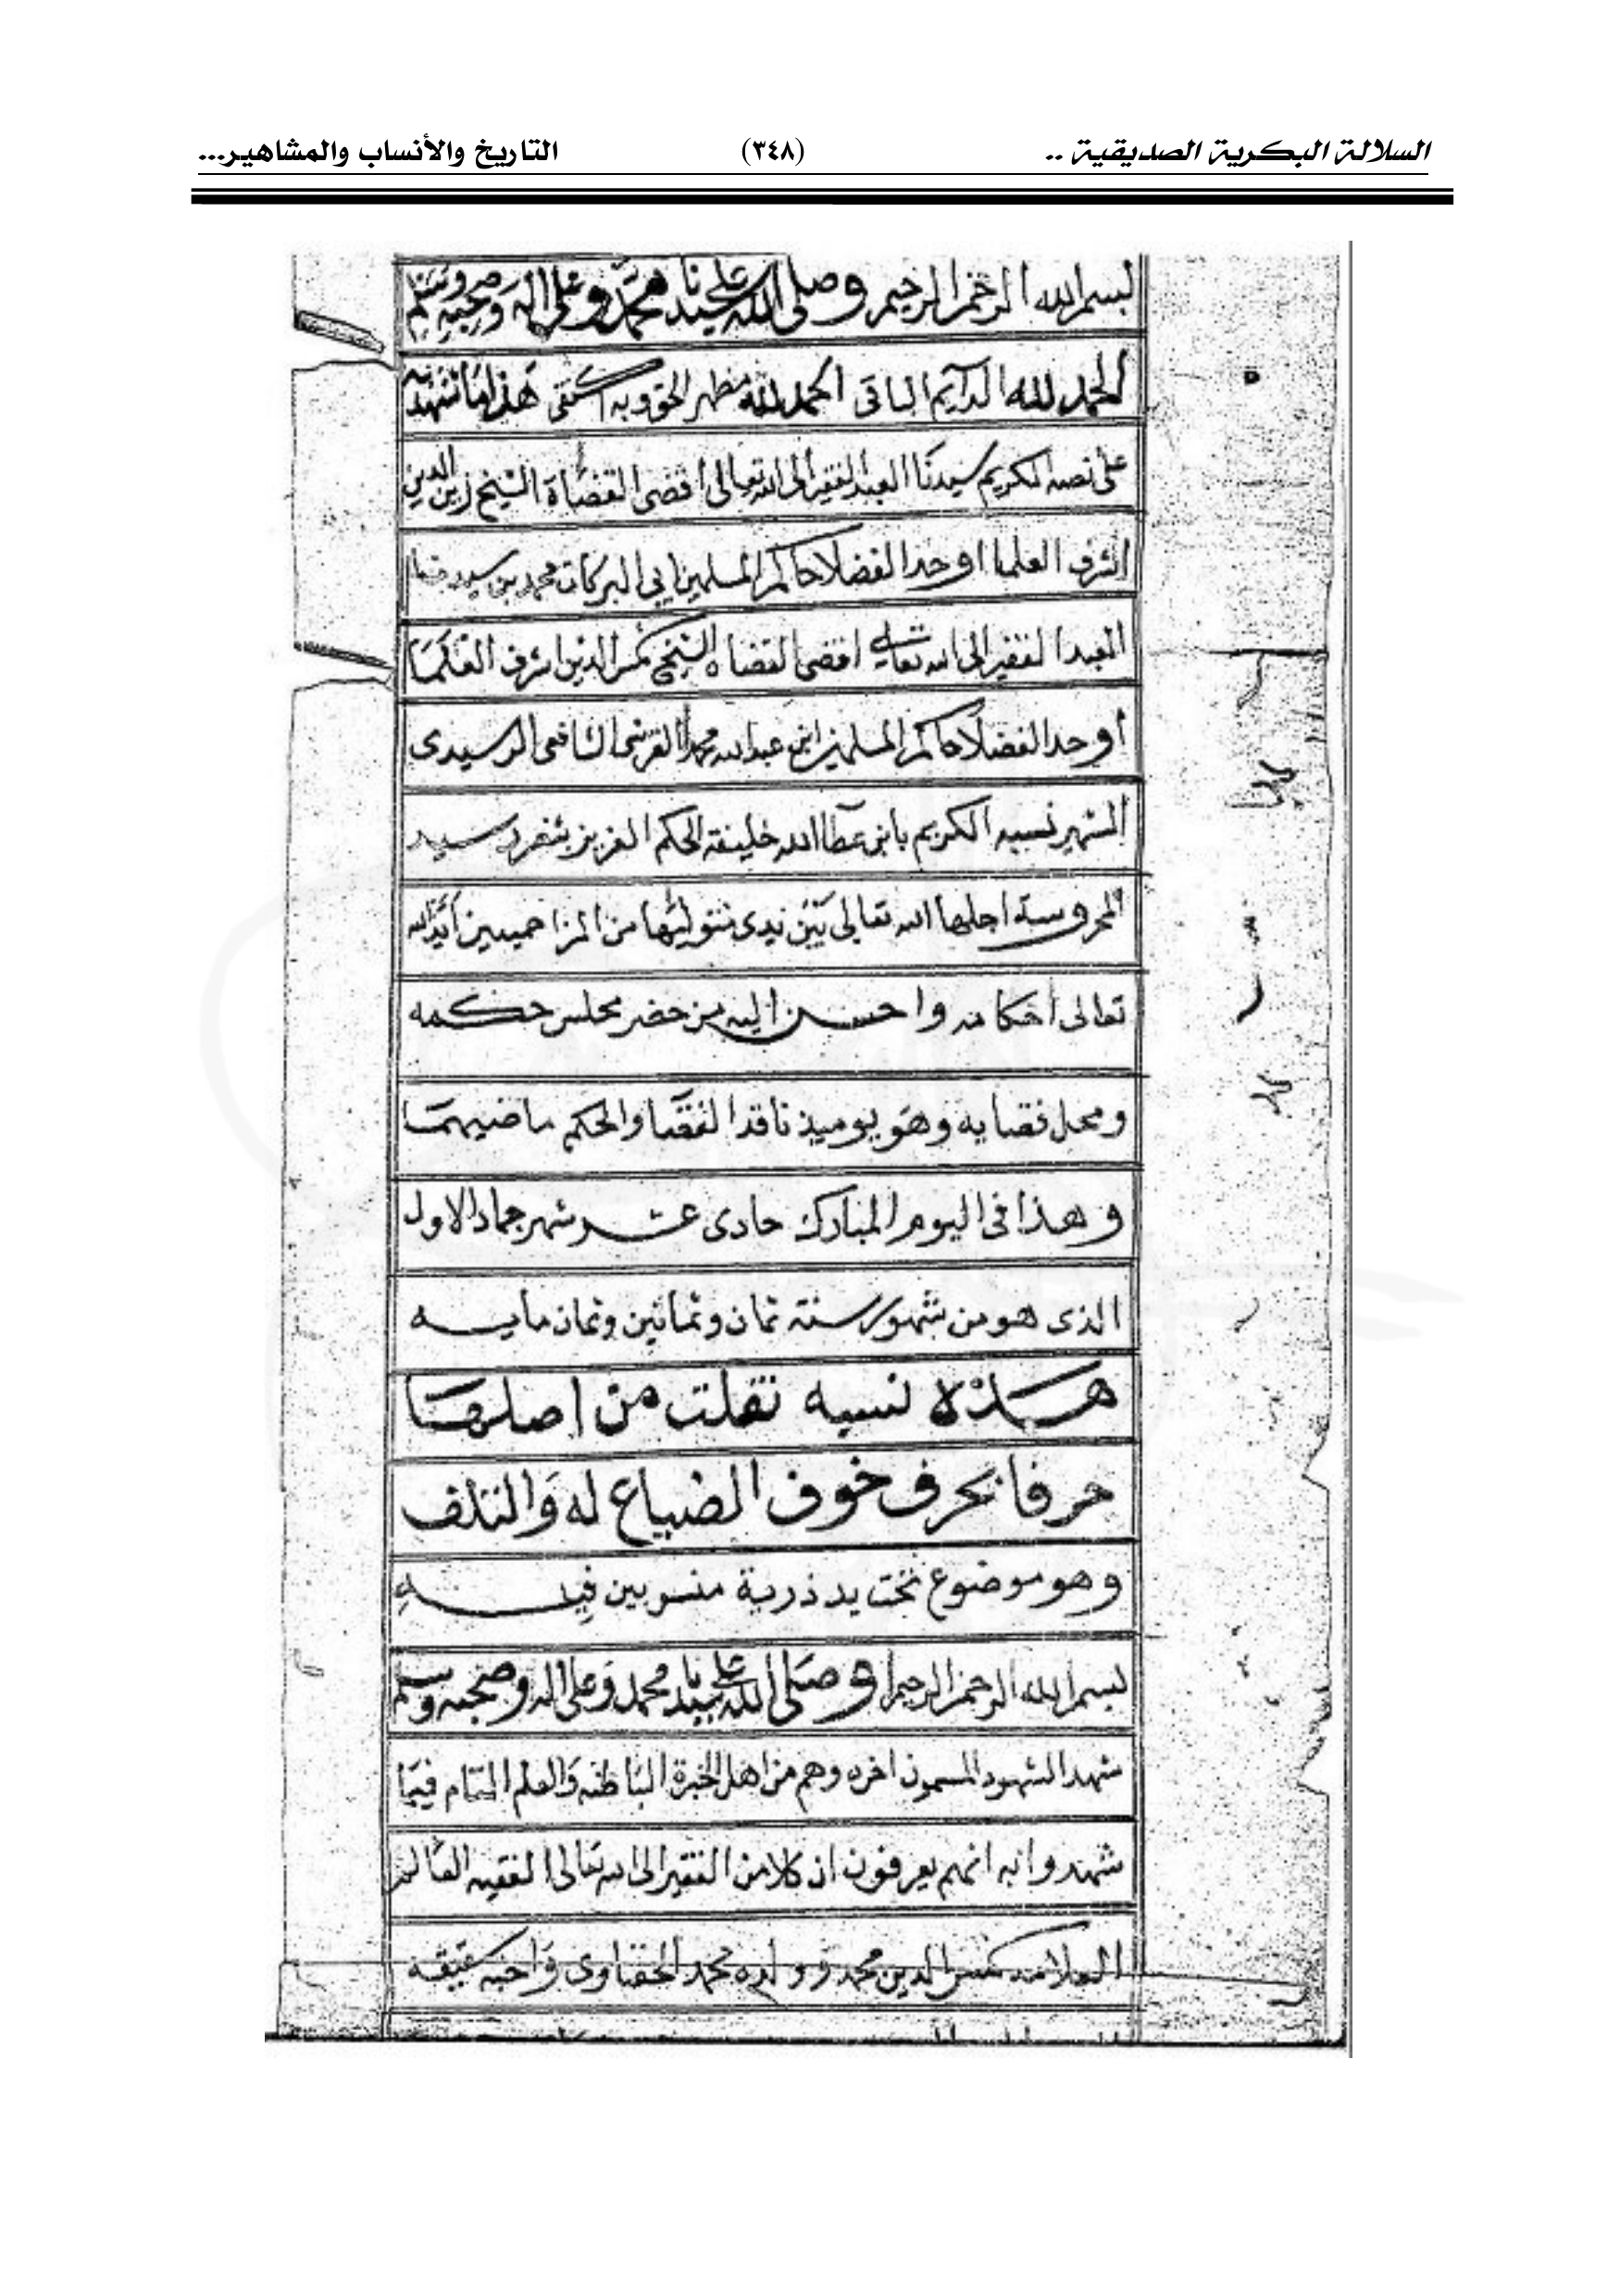 السلالة البكرية الصديقية .. (٣٤٨) التاريخ والأنساب والمشاهير...
بسم الله الرحمن الرحيم وصلى الله على سيدنا محمد وعلى اله وصحبه وسلم
الحمد لله الدايم الباقى الحمد لله مظهر الحق وبه اكتفى هذا ما شهد به
على نصه الكريم سيدنا العبد الفقير الى الله تعالى اقضى القضاة الشيخ زين الدين
اشرف العلما اوحد الفضلا حاكم المسلمين ابي البركات محمد بن سيدنا
العبد الفقير الى الله تعالى اقضى القضاه الشيخ شمس الدين اشرف العلما
أوحد الفضلا حاكم المسلمين ابى عبد الله محمد القرشى الشافعى الرشيدى
الشهير نسبه الكريم بابن عطا الله خليفة الحكم العزيز بثغر رشيد
المحروسة تعالى من المزاحمين ايد الله
تعالى احكامه واحسن اليه من حضر مجلس حكمه
ومحل قضايه وهو يوميذ نافذ القضا والحكم ماضيهما
وهذا فى اليوم المبارك حادى عشر شهر جماد الاول
الذى هو من شهور سنة ثمان وثمانين وثمان مايه
هذه نسبه نقلت من اصلها
حرفا بحرف خوف الضياع له والتلف
وهو موضوع تحت يد ذرية منسوبين فيه
بسم الله الرحمن الرحيم وصلى الله على سيدنا محمد وعلى اله وصحبه وسلم
شهد الشهود المسمون اخره وهم من اهل الخبرة الباطنه والعلم التام فيما
شهدوا به انهم يعرفون ان كلا من الفقير الى الله تعالى الفقيه العالم
العلامه شمس الدين محمد وولده محمد الحفناوى